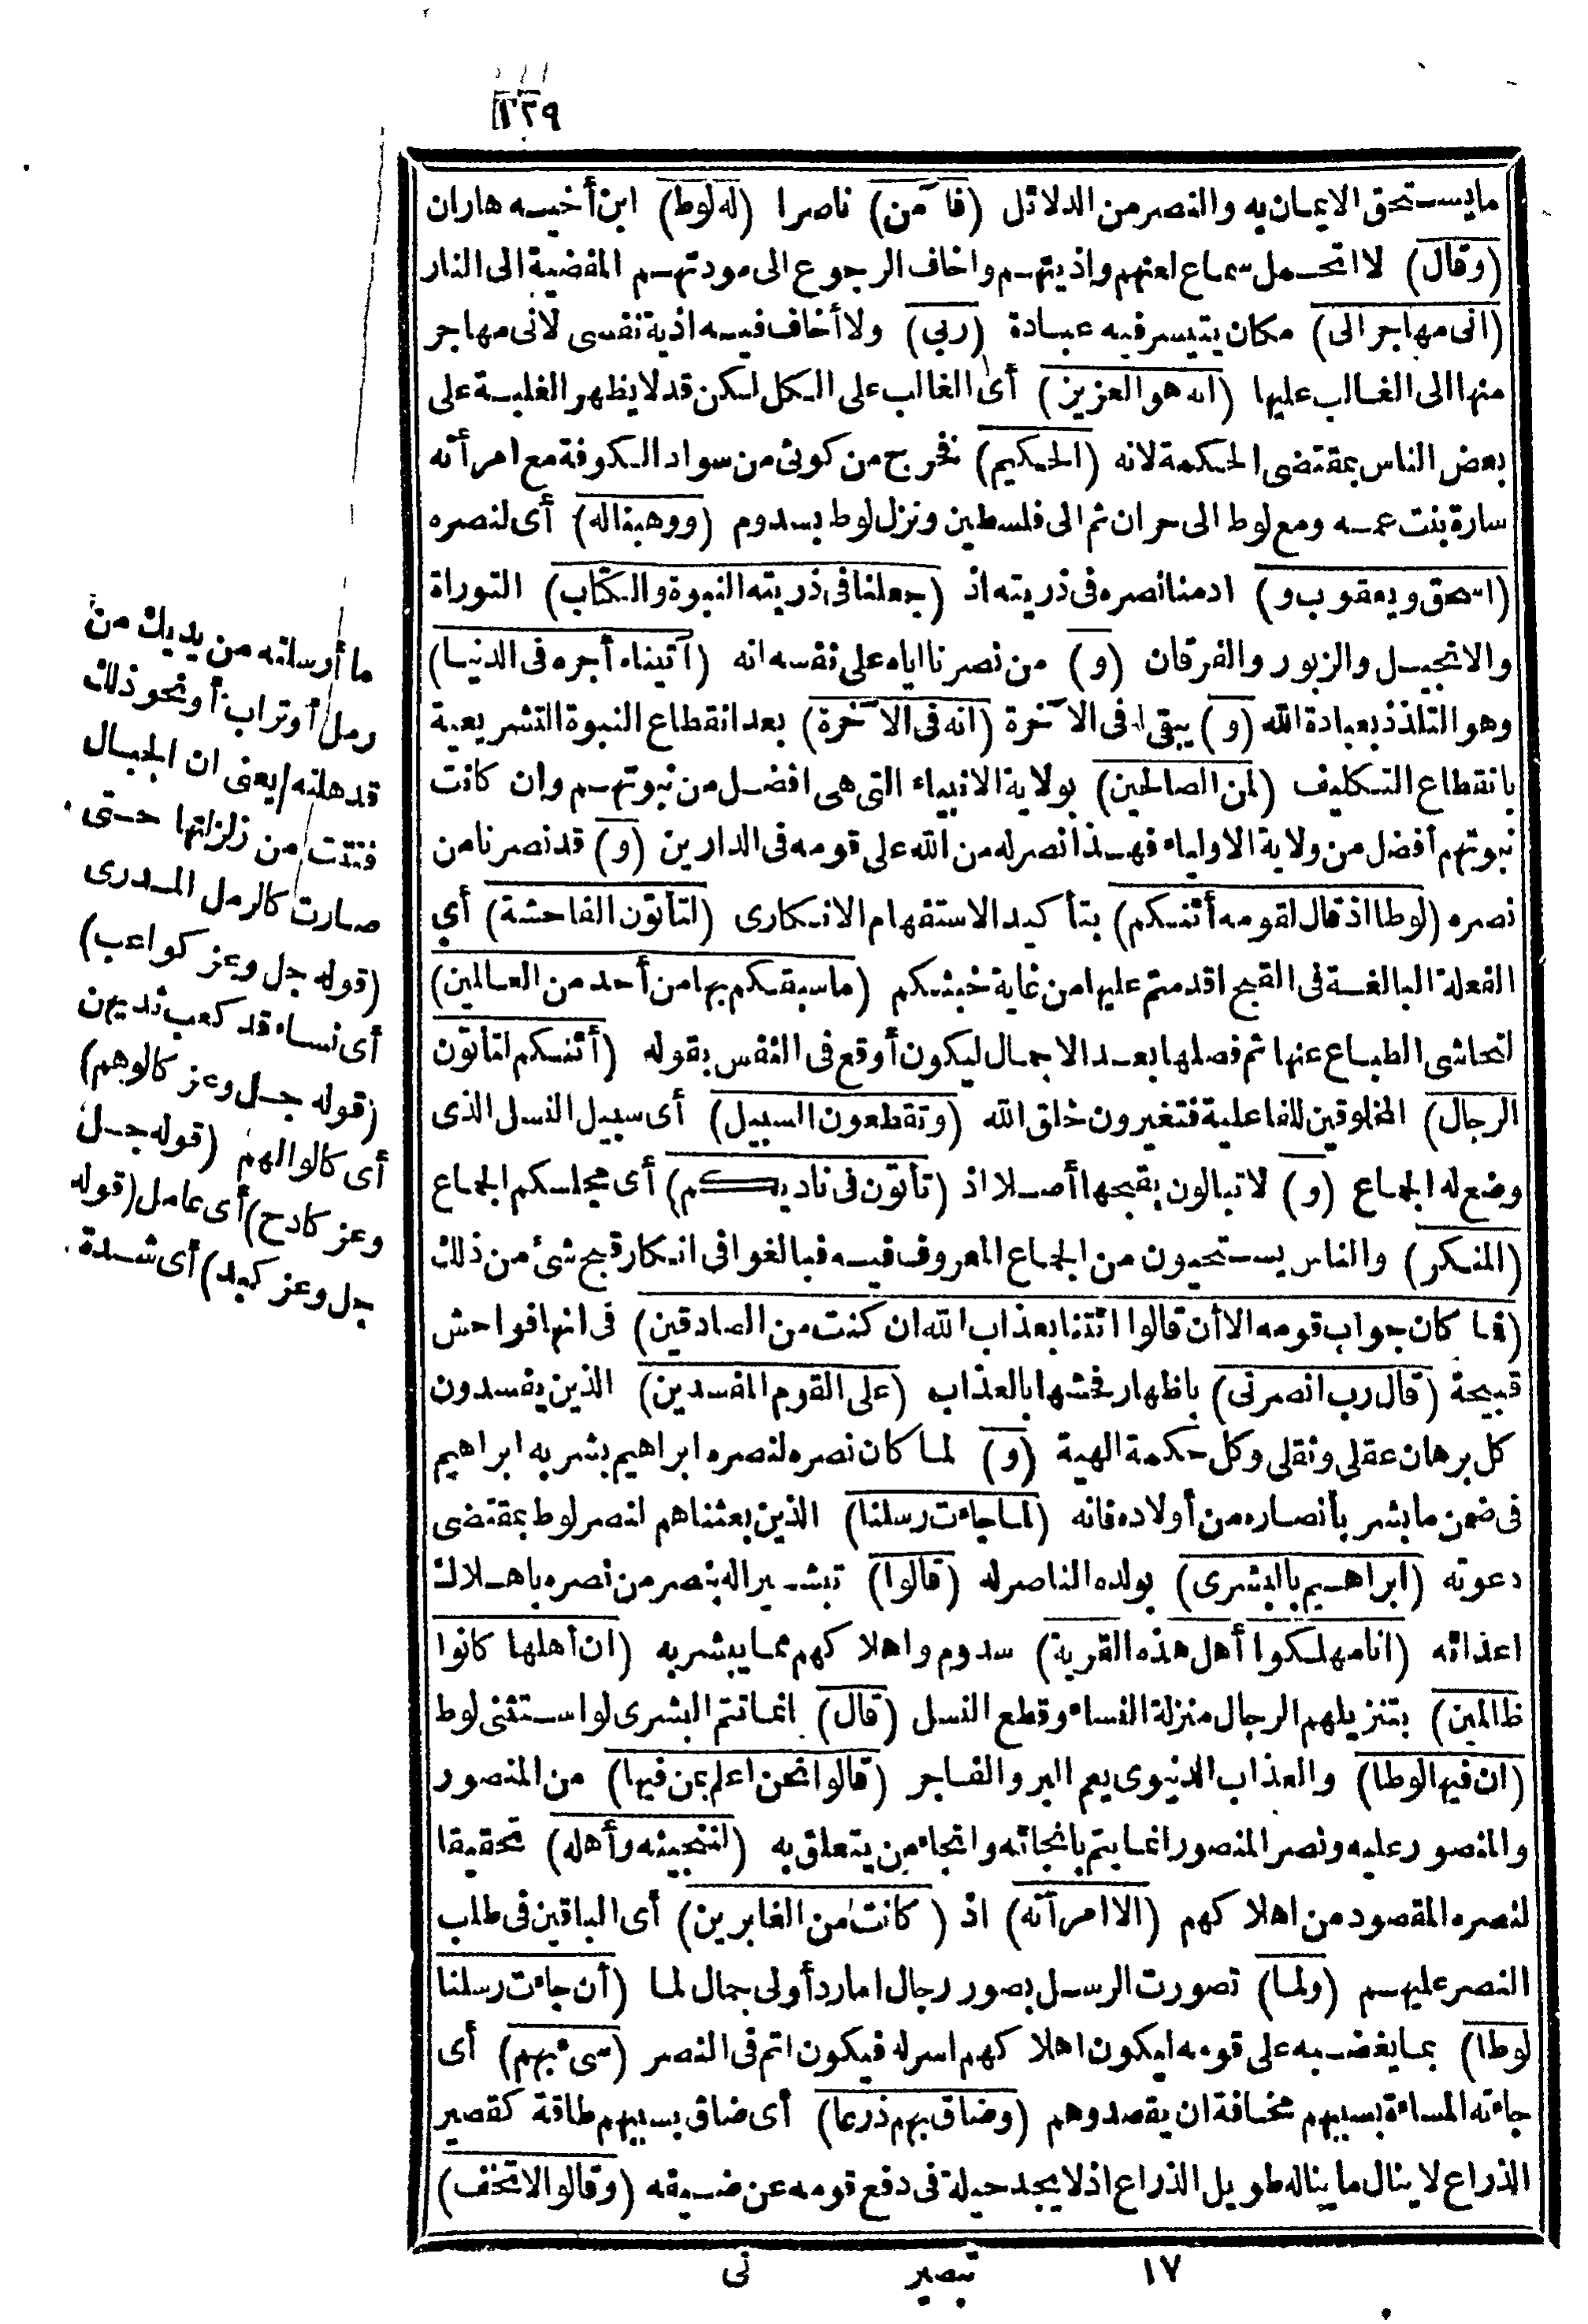 ١٢٩
ما يستحق الايمان به والنصر من الدلائل (فآمن) ناصرا (له لوط) ابن أخيه هاران
(وقال) لا اتحمل سماع لعنهم واذيتهم واخاف الرجوع الى مودتهم المفضية الى النار
(انى مهاجر الى) مكان يتيسر فيه عبادة (ربي) ولا أخاف فيه اذية نفسى لانى مهاجر
منها الى الغالب عليها (انه هو العزيز) أى الغالب على الكل لكن قد لا يظهر الغلبة على
بعض الناس بمقتضى الحكمة لانه (الحكيم) فخرج من كوثى من سواد الكوفة مع امرأته
سارة بنت عمه ومع لوط الى حران ثم الى فلسطين ونزل لوط بسدوم (ووهبنا له) أى لنصره
(اسحق ويعقوب و) ادمنا نصره فى ذريته اذ (جعلنا فى ذريته النبوة والكتاب) التوراة
والانجيل والزبور والفرقان (و) من نصرنا اياه على نفسه انه (آتيناه أجره فى الدنيا)
وهو التلذذ بعبادة الله (و) يبقى له فى الآخرة (انه فى الآخرة) بعد انقطاع النبوة التشريعية
بانقطاع التكليف (لمن الصالحين) بولاية الانبياء التى هى افضل من نبوتهم وان كانت
نبوتهم أفضل من ولاية الاولياء فهذا نصر له من الله على قومه فى الدارين (و) قد نصرنا من
نصره (لوطا اذ قال لقومه أئنكم) بتأكيد الاستفهام الانكارى (لتأتون الفاحشة) أي
الفعلة البالغة فى القبح اقدمتم عليها من غاية خبثكم (ما سبقكم بها من أحد من العالمين)
لتحاشى الطباع عنها ثم فصلها بعد الاجمال ليكون أوقع فى النفس بقوله (أئنكم لتأتون
الرجال) المخلوقين للفاعلية فتغيرون خلق الله (وتقطعون السبيل) أى سبيل النسل الذى
وضع له الجماع (و) لا تبالون بقبحها أصلا اذ (تأتون فى ناديكم) أى مجلسكم الجماع
(المنكر) والناس يستحيون من الجماع المعروف فيه فبالغوا فى انكار قبح شئ من ذلك
(فما كان جواب قومه الا أن قالوا ائتنا بعذاب الله ان كنت من الصادقين) فى انها فواحش
قبيحة (قال رب انصرنى) باظهار فحشها بالعذاب (على القوم المفسدين) الذين يفسدون
كل برهان عقلى ونقلى وكل حكمة الهية (و) لما كان نصره لنصره ابراهيم بشر به ابراهيم
فى ضمن ما بشر بأنصاره من أولاده فانه (لما جاءت رسلنا) الذين بعثناهم لنصر لوط بمقتضى
دعوته (ابراهيم بالبشرى) بولده الناصر له (قالوا) تبشيرا له بنصر من نصره باهلاك
اعدائه (انا مهلكوا أهل هذه القرية) سدوم واهلاكهم مما يبشر به (ان أهلها كانوا
ظالمين) بتنزيلهم الرجال منزلة النساء وقطع النسل (قال) انما تتم البشرى لو استثنى لوط
(ان فيها لوطا) والعذاب الدنيوى يعم البر والفاجر (قالوا نحن اعلم بمن فيها) من المنصور
والمنصور عليه ونصر المنصور انما يتم بانجائه وانجاء من يتعلق به (لننجينه وأهله) تحقيقا
لنصره المقصود من اهلاكهم (الا امرأته) اذ (كانت من الغابرين) أى الباقين فى طلب
النصر عليهم (ولما) تصورت الرسل بصور رجال امارد أولى جمال لما (أن جاءت رسلنا
لوطا) بما يغضبه على قومه ليكون اهلاكهم اسر له فيكون اتم فى النصر (سىء بهم) أى
جاءته المساءة بسببهم مخافة ان يقصدوهم (وضاق بهم ذرعا) أى ضاق بسببهم طاقة كقصير
الذراع لا ينال ما يناله طويل الذراع اذ لا يجد حيلة فى دفع قومه عن ضيفه (وقالوا لا تخف)
ما أرسلته من يديك من
رمل أو تراب أو نحو ذلك
قد هلته يعنى ان الجبال
فتتت من زلزلتها حتى
صارت كالرمل المذرى
(قوله جل وعز كواعب)
أى نساء قد كعب ثديهن
(قوله جل وعز كالوهم)
أى كالوا لهم (قوله جل
وعز كادح) أى عامل (قوله
جل وعز كبد) أى شدة
١٧ تبصير نى